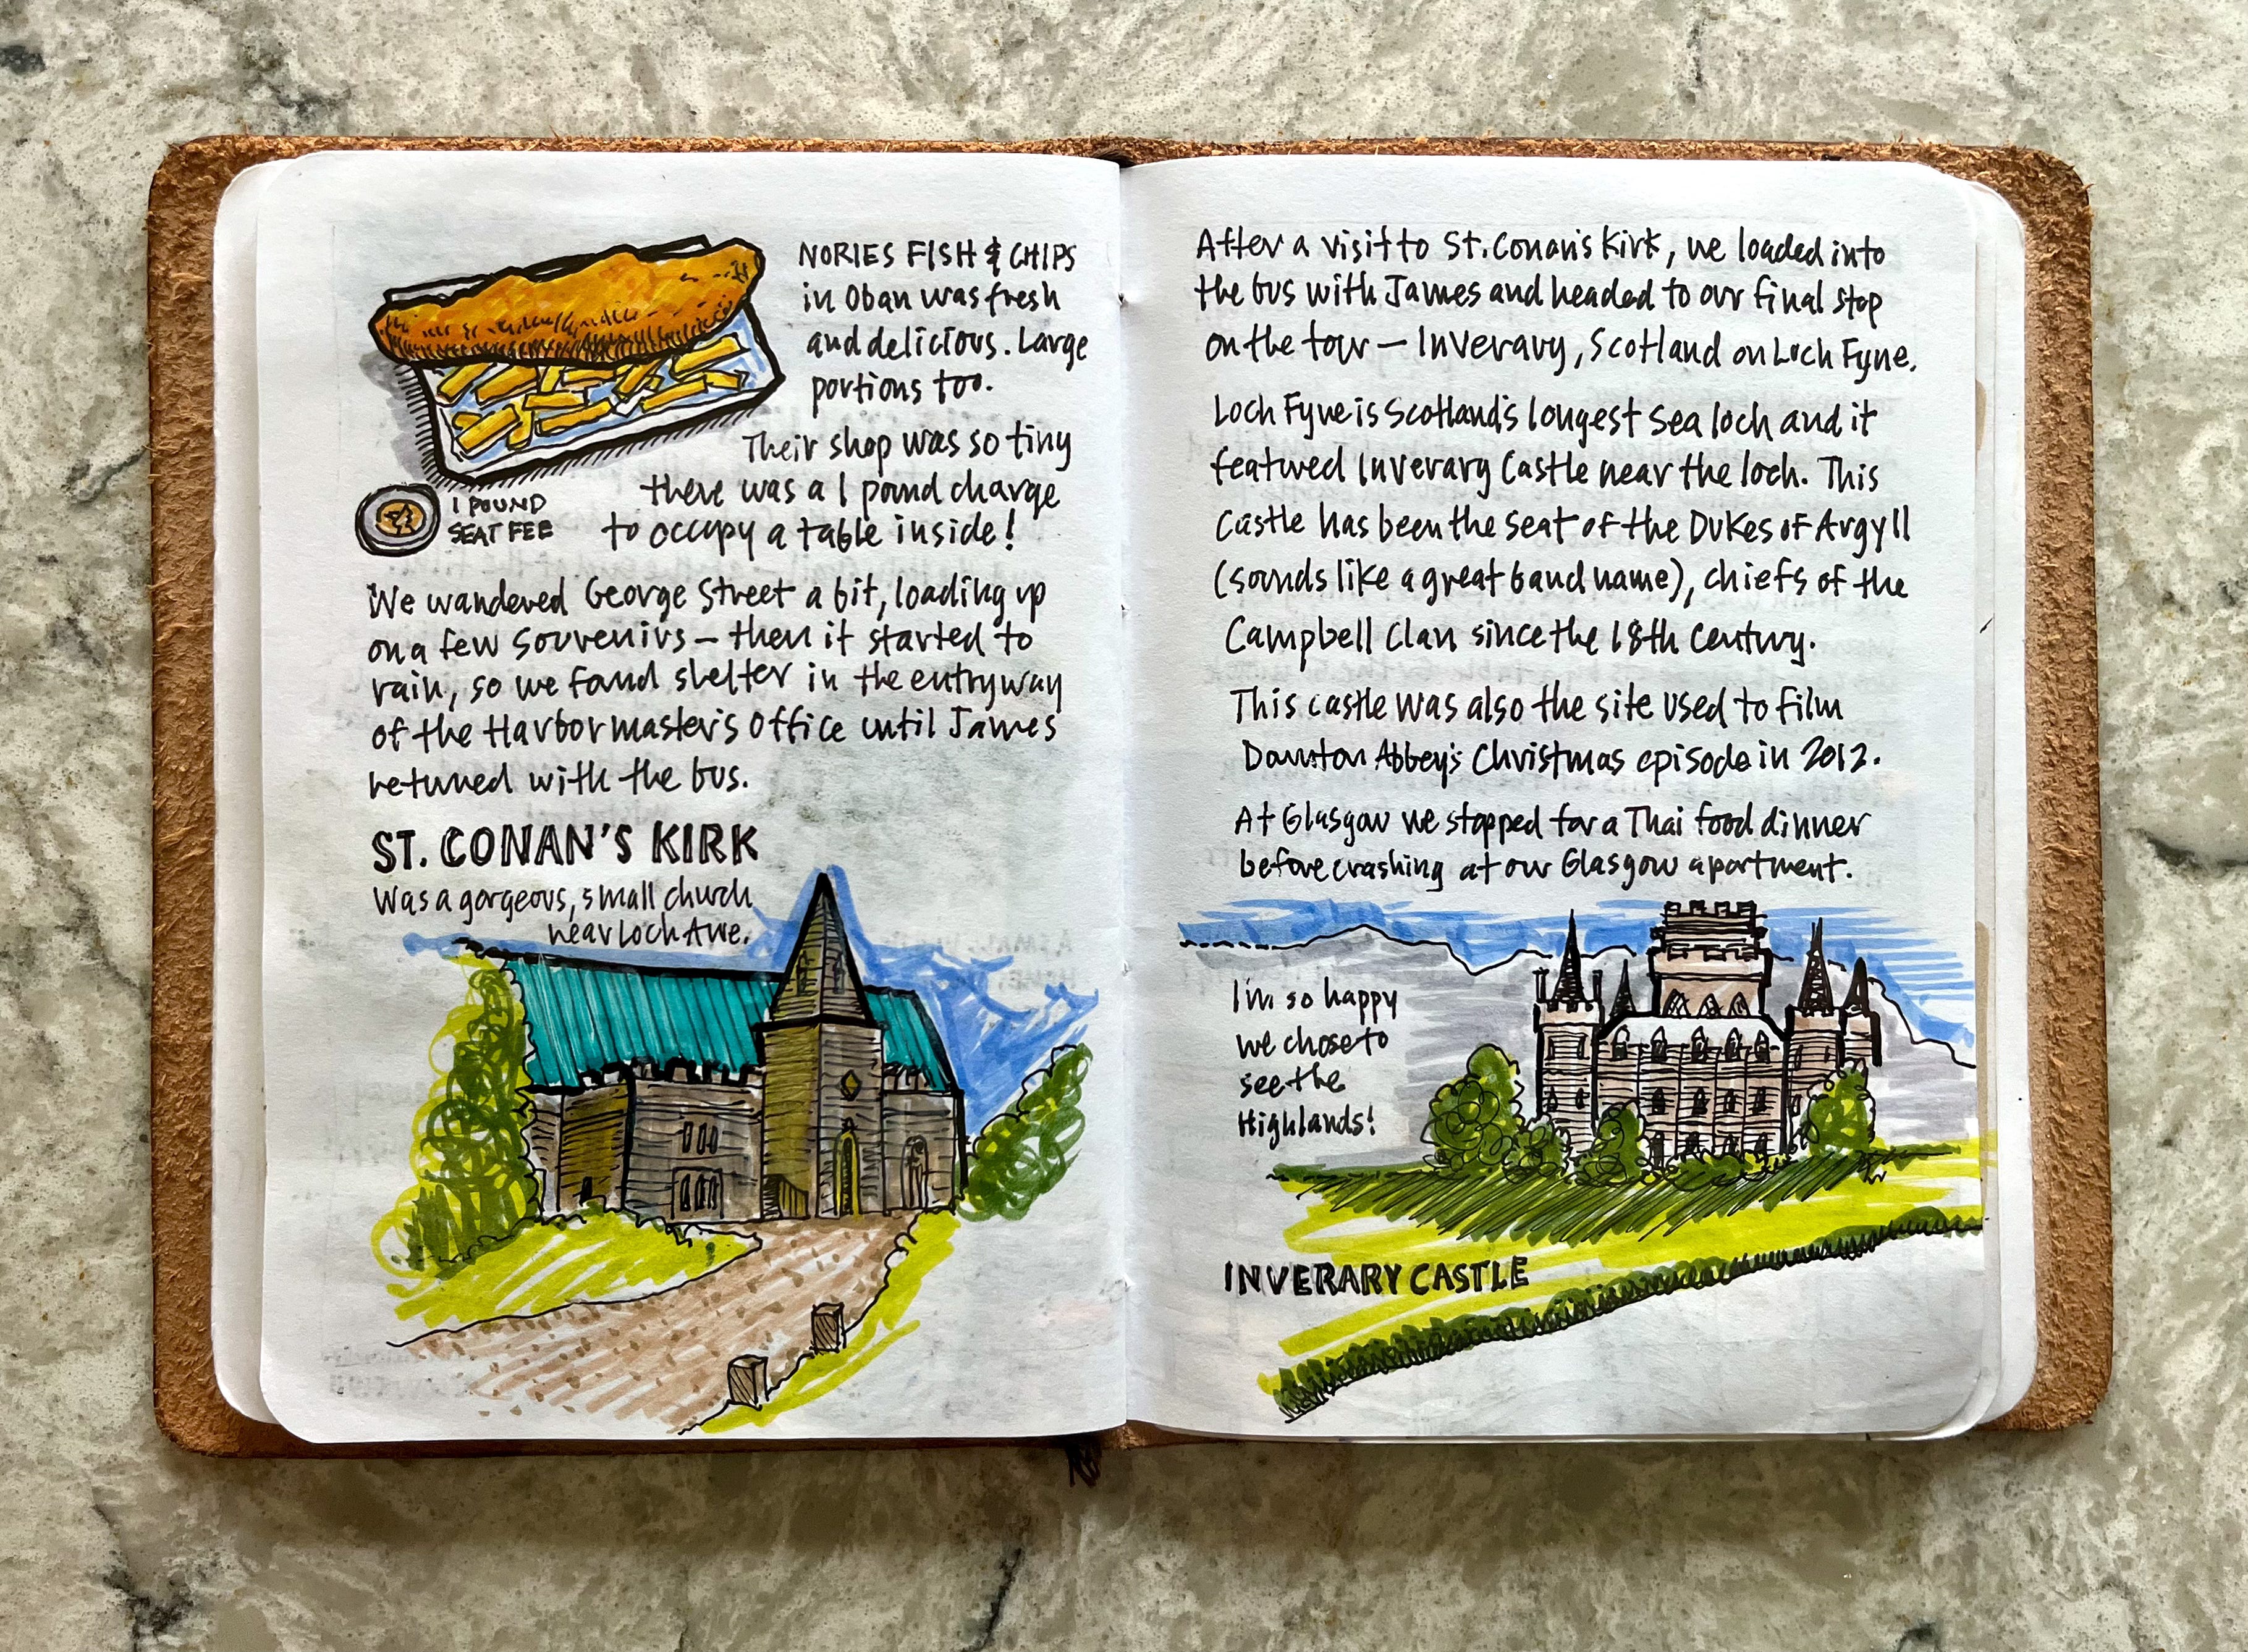 NORIES FISH & CHIPS
in Oban was fresh
and delicious. Large
portions too.
Their shop was so tiny
there was a 1 pound charge
to occupy a table inside!
1 POUND
SEAT FEE
We wandered George Street a bit, loading up
on a few souvenirs — then it started to
rain, so we found shelter in the entryway
of the Harbormaster's Office until James
returned with the bus.
ST. CONAN'S KIRK
Was a gorgeous, small church
near Loch Awe.
After a visit to St. Conan's Kirk, we loaded into
the bus with James and headed to our final stop
on the tour — Inverary, Scotland on Loch Fyne.
Loch Fyne is Scotland's longest sea loch and it
featured Inverary Castle near the loch. This
Castle has been the seat of the Dukes of Argyll
(sounds like a great band name), chiefs of the
Campbell Clan since the 18th Century.
This castle was also the site used to film
Downton Abbey's Christmas episode in 2012.
At Glasgow we stopped for a Thai food dinner
before crashing at our Glasgow apartment.
I'm so happy
we chose to
see the
Highlands!
INVERARY CASTLE